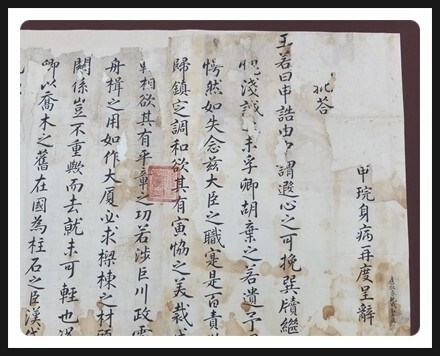 申琓身病再度呈辭
批答
王若曰申誥由謂遐心之可挽巽牘繼
淺誠未孚卿胡棄之若遺予
愕然如失念玆大臣之職寔是百責
歸鎮定調和欲其有寅協之美裁
相欲其有平章之功若涉巨川政
舟楫之用如作大厦必求樑棟之材
關係豈不重歟而去就未可輕也
卿以喬木之舊在國為柱石之臣漢